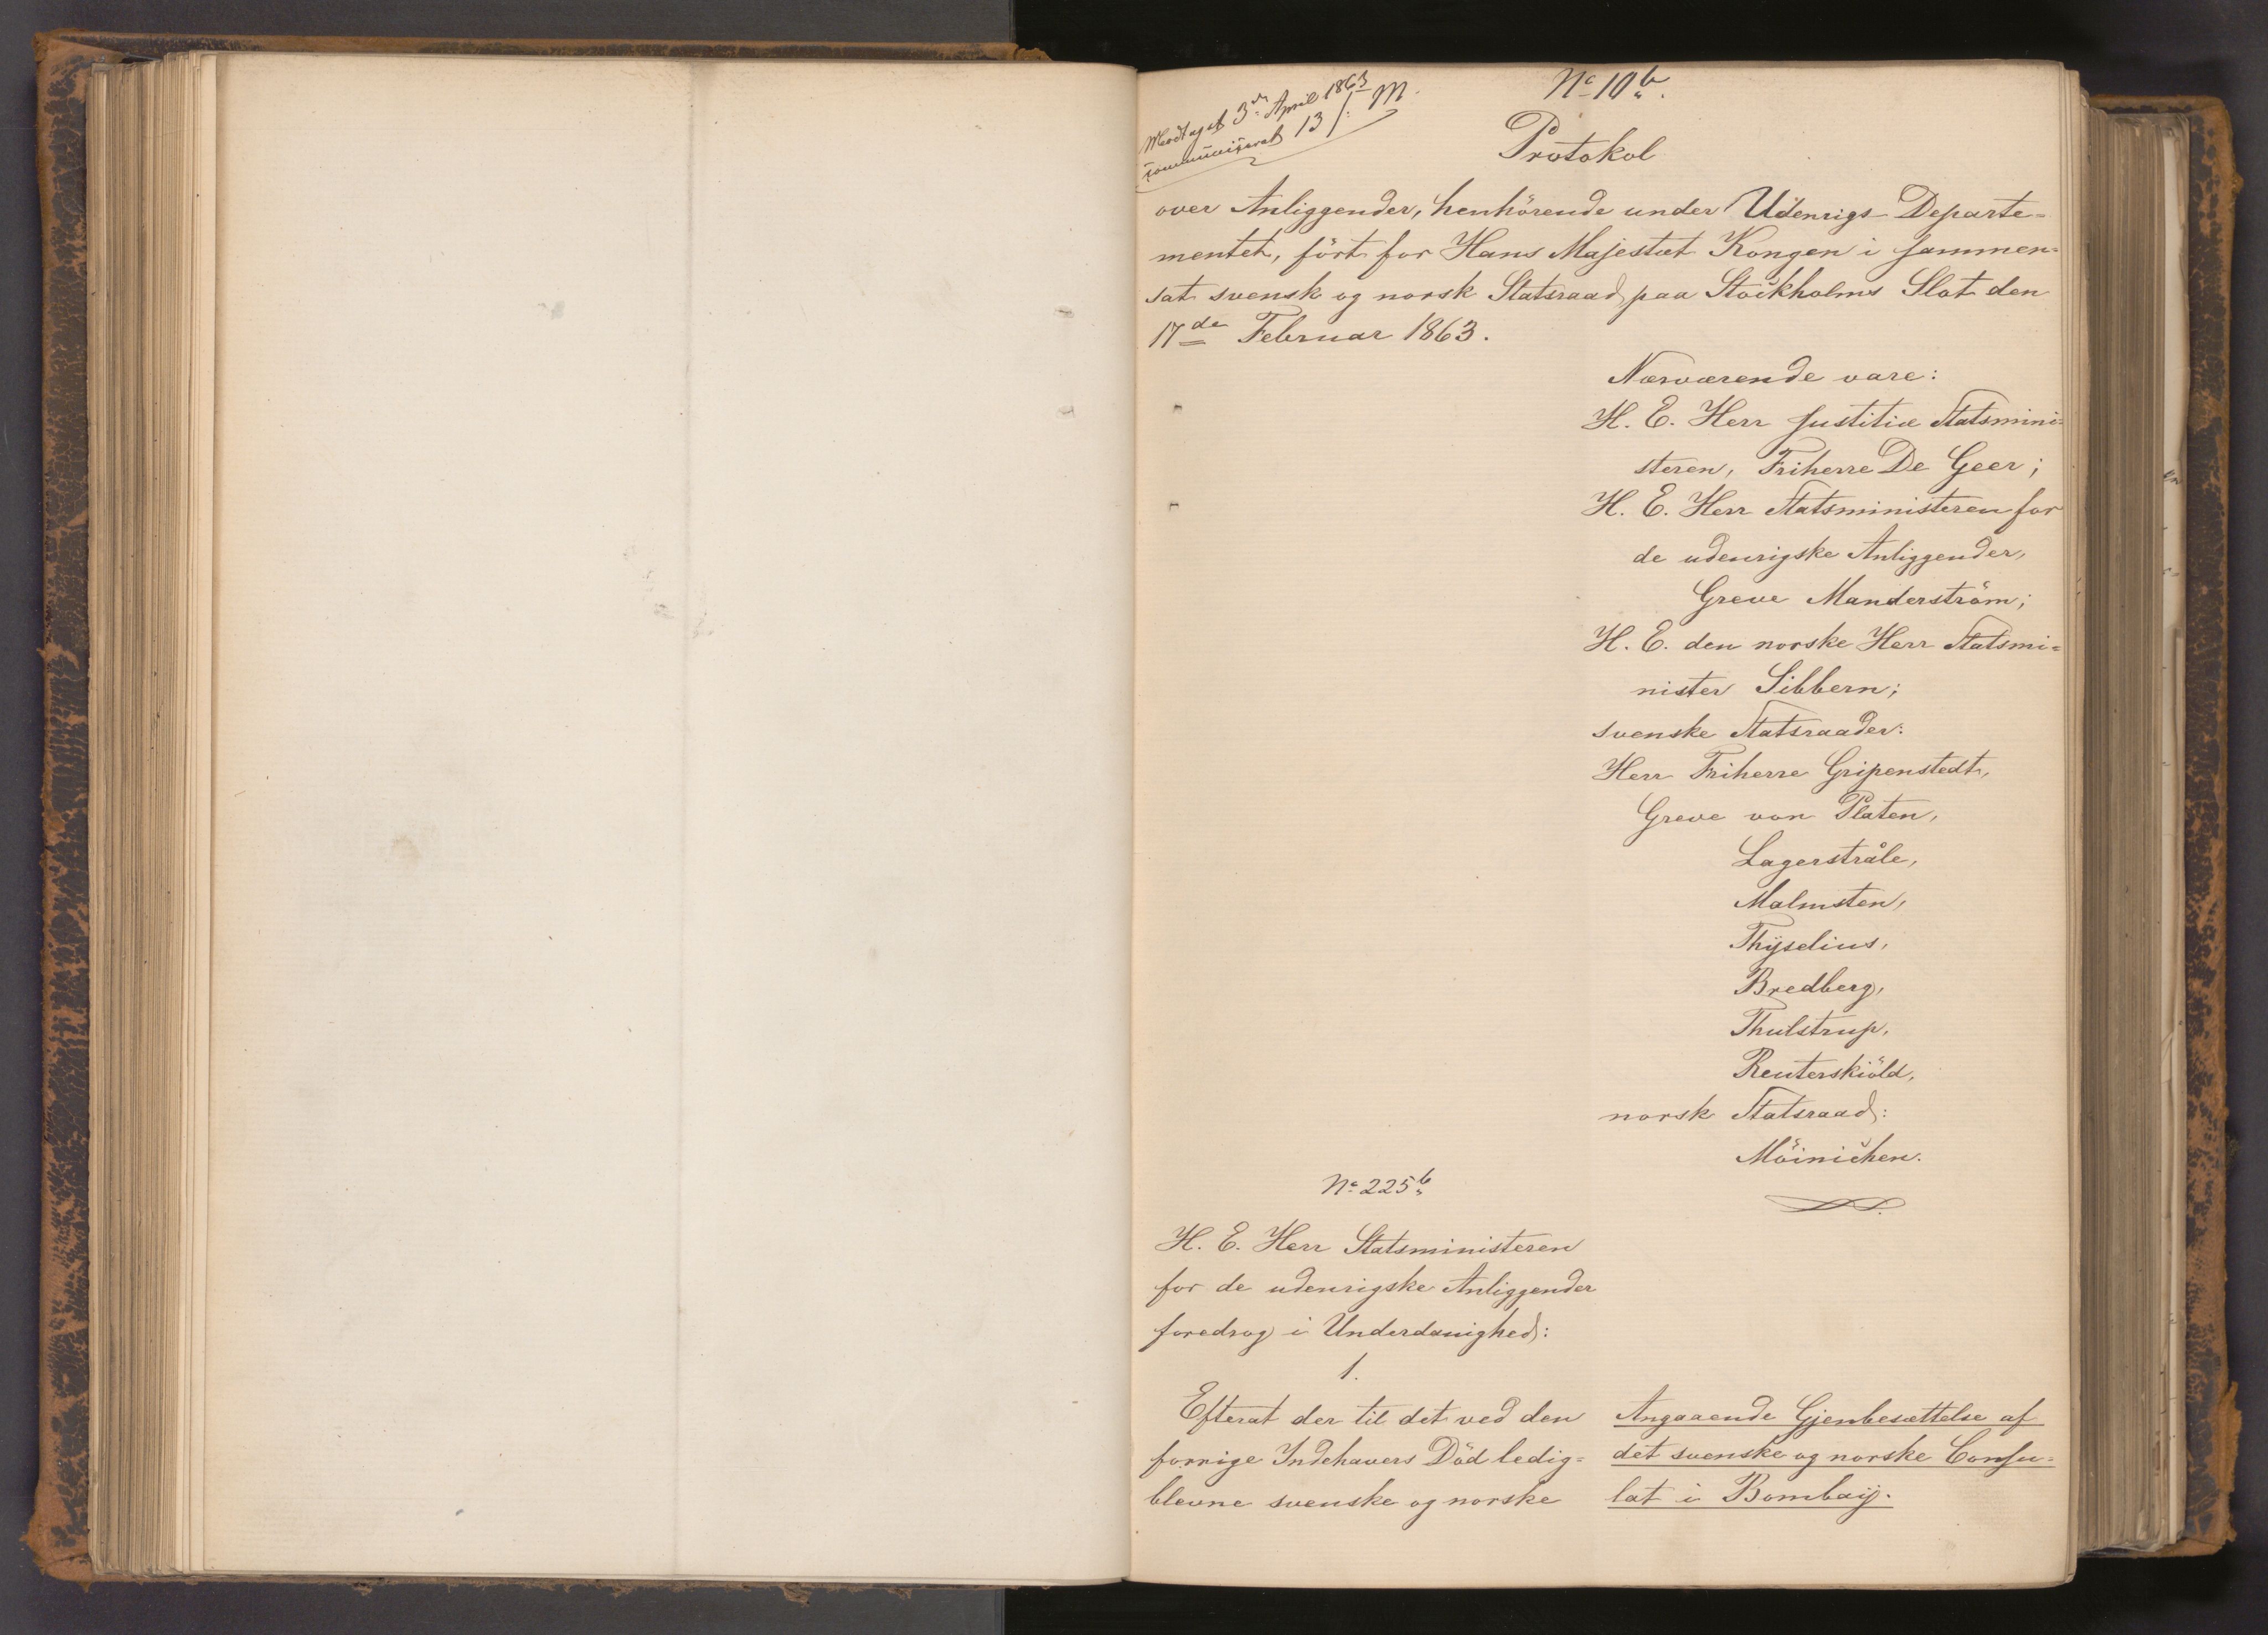 Modtaget 3die April 1863
communiceret 13/: M.
No 10b.
Protokol
over Anliggender, henhörende under Udenrigs-Departe=
mentet, fört for Hans Majestæt Kongen i sammen=
sat svensk og norsk Statsraad paa Stockholms Slot den
17de Februar 1863.
Nærværende vare:
H. E. Herr Justitiæ Statsmini=
steren, Friherre De Geer;
H. E. Herr Statsministeren for
de udenrigske Anliggender,
Greve Manderström;
H. E. den norske Herr Statsmi=
nister Sibbern;
svenske Statsraader:
Herr Friherre Gripenstedt,
Greve von Platen,
Lagerstråle,
Malmsten,
Thyselius,
Bredberg,
Thulstrup,
Reuterskiöld,
norsk Statsraad:
Möinichen.
No 225b
H. E. Herr Statsministeren
for de udenrigske Anliggender
foredrog i Underdanighed:
1.
Efterat der til det ved den
forrige Indehavers Död ledig=
blevne svenske og norske
Angaaende Gjenbesættelse af
det svenske og norske Consu=
lat i Bombay.